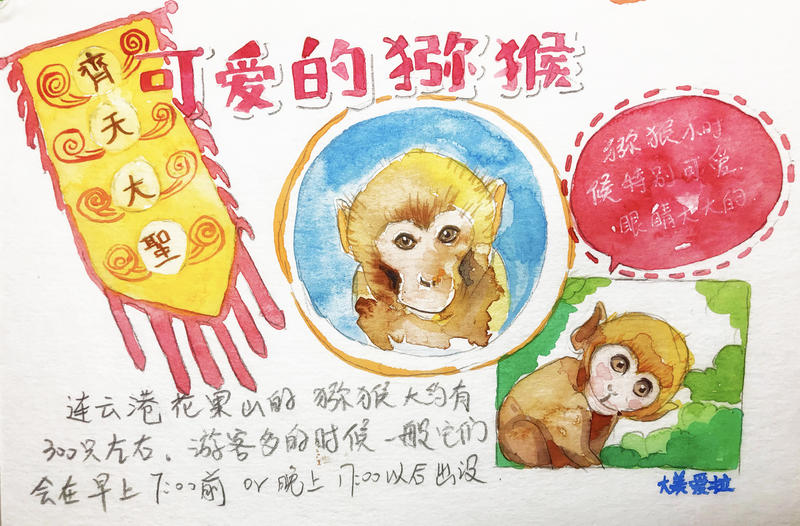 可爱的猕猴
齊
天
大
聖
猕猴小时
候特别可爱、
眼睛大大的.
连云港花果山的猕猴大约有
300只左右、游客多的时候一般它们
会在早上7:00前 or 晚上17:00以后出没.
大美爱拉